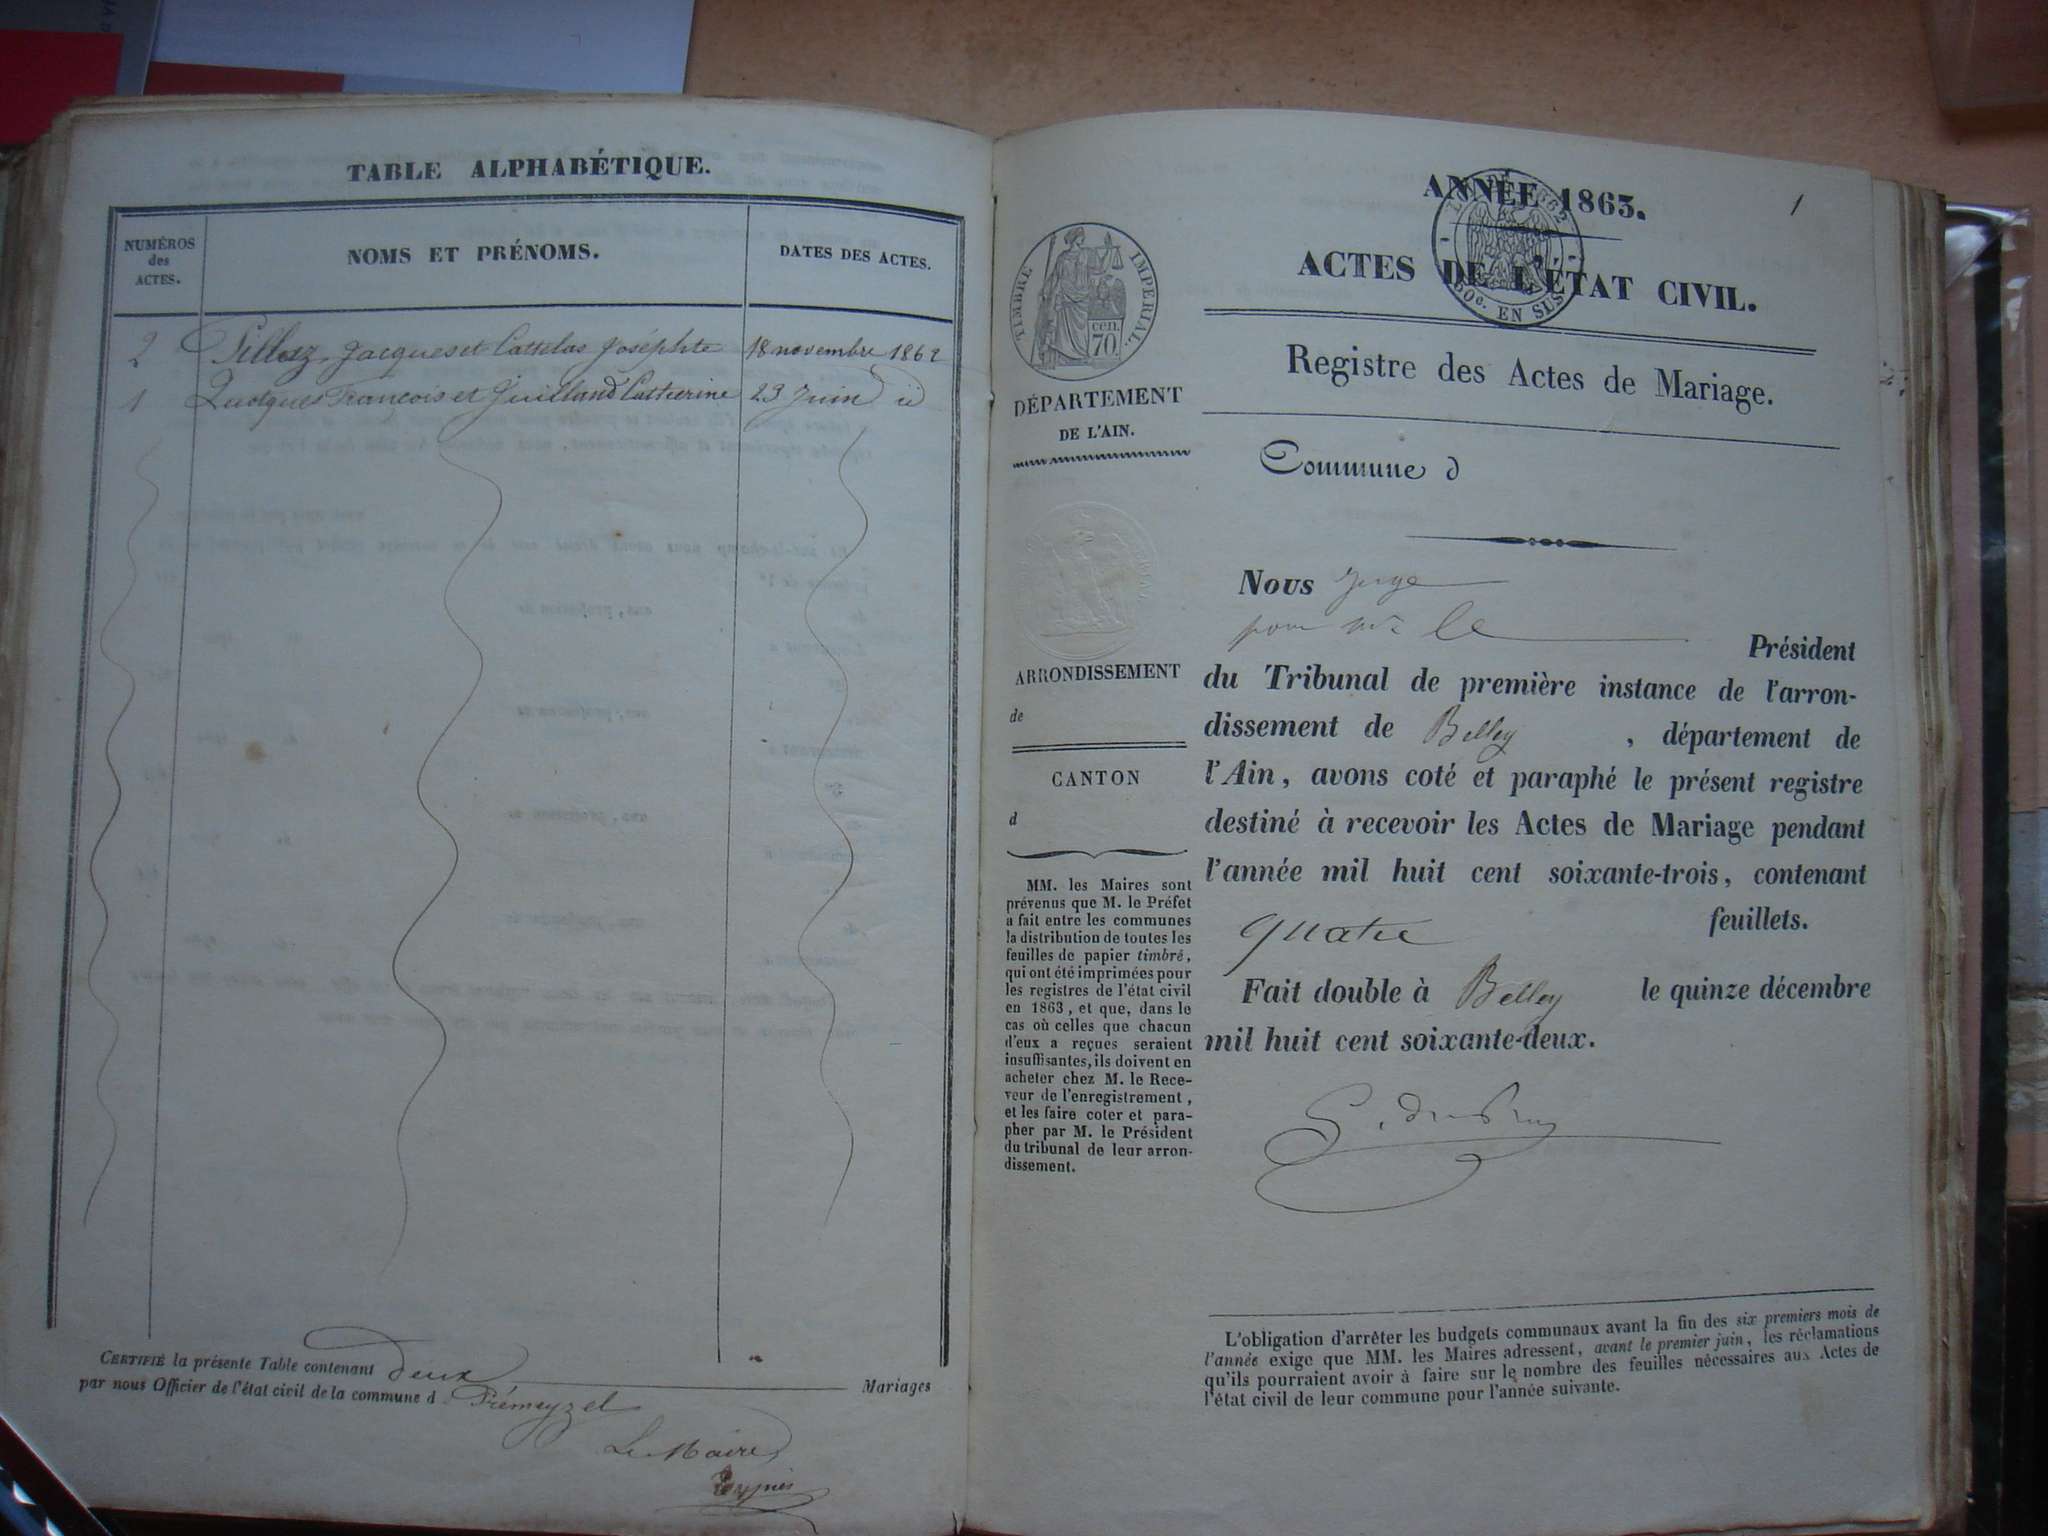 TABLE ALPHABÉTIQUE.
NUMÉROS
des
ACTES.
NOMS ET PRÉNOMS.
DATES DES ACTES.
2 Pillaz Jacques et Cattelas Joséphte 18 novembre 1862
1 François et Juilland Catherine 23 Juin id
CERTIFIÉ la présente Table contenant deux Mariages
par nous Officier de l'état civil de la commune d Prémeyzel
Le Maire
1
ANNÉE 1863.
ACTES DE L'ÉTAT CIVIL.
50c. EN SUS
TIMBRE IMPERIAL.
70 cen.
DÉPARTEMENT
DE L'AIN.
ARRONDISSEMENT
de
CANTON
d
MM. les Maires sont
prévenus que M. le Préfet
a fait entre les communes
la distribution de toutes les
feuilles de papier timbré,
qui ont été imprimées pour
les registres de l'état civil
en 1863, et que, dans le
cas où celles que chacun
d'eux a reçues seraient
insuffisantes, ils doivent en
acheter chez M. le Rece-
veur de l'enregistrement,
et les faire coter et para-
pher par M. le Président
du tribunal de leur arron-
dissement.
Registre des Actes de Mariage.
Commune d
Nous Juge
pour Mr le
Président
du Tribunal de première instance de l'arron-
dissement de Belley, département de
l'Ain, avons coté et paraphé le présent registre
destiné à recevoir les Actes de Mariage pendant
l'année mil huit cent soixante-trois, contenant
quatre feuillets.
Fait double à Belley le quinze décembre
mil huit cent soixante-deux.
L'obligation d'arrêter les budgets communaux avant la fin des six premiers mois de
l'année exige que MM. les Maires adressent, avant le premier juin, les réclamations
qu'ils pourraient avoir à faire sur le nombre des feuilles nécessaires aux Actes de
l'état civil de leur commune pour l'année suivante.